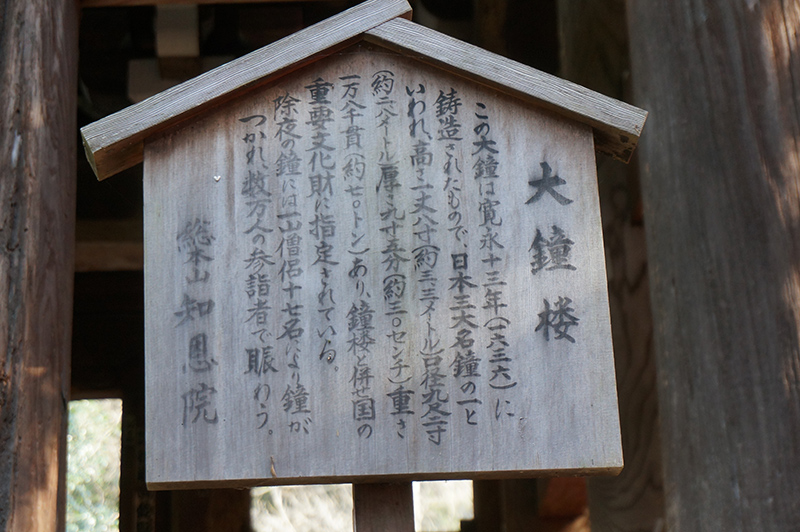 大鐘楼
この大鐘は寛永十三年(一六三六)に
鋳造されたもので、日本三大名鐘の一と
いわれ、高さ一丈八寸(約三.三メートル)口径九尺二寸
(約二.八メートル)厚さ九寸五分(約三〇センチ)重さ
一万八千貫(約七〇トン)あり、鐘楼と併せ国の
重要文化財に指定されている。
除夜の鐘には一山僧侶十七名により鐘が
つかれ、数万人の参詣者で賑わう。
総本山 知恩院